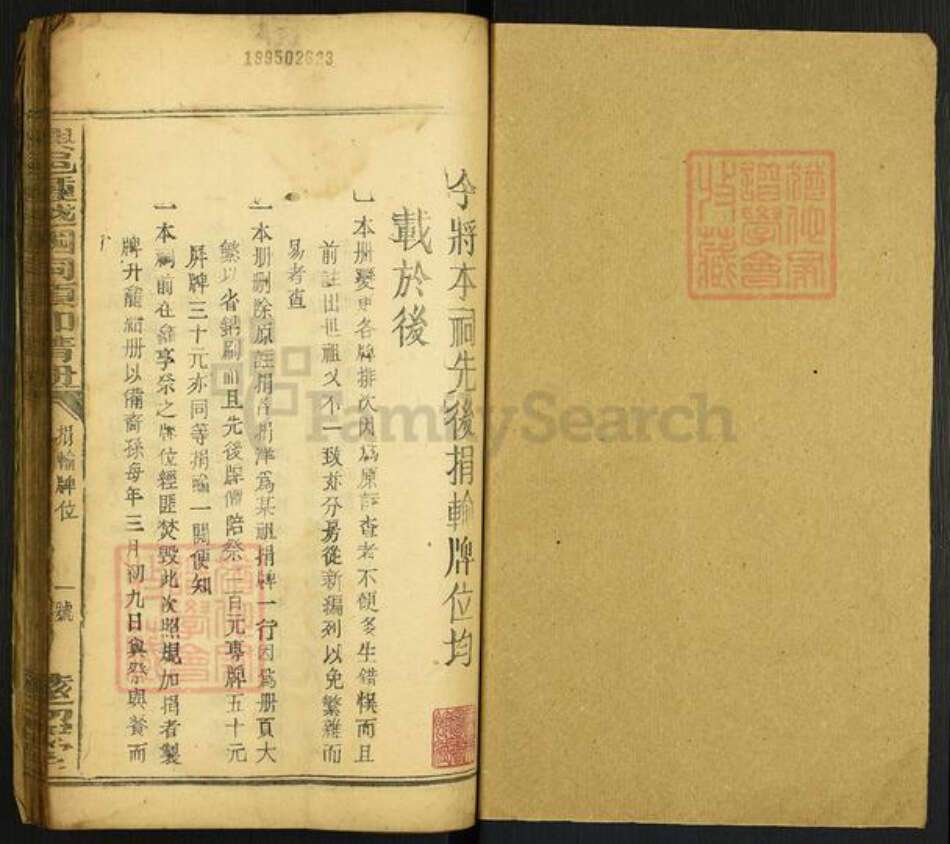 199502623
今將本祠先後捐輸牌位均
載於後
一本册憂更各牌排次因為原詳查老不便多生錯悞而且
前註出世祖又不一致亦分房從新編列以免繁雜而
易者查
一本册刪除原註捐者捐洋為某祖捐牌一行因為册頁大
繁以省鐫刷而且先後牌價陪祭一百元專牌五十元
屏牌三十元亦同等捐輸一閱便知
一本祠前在龕享祭之牌位經匪焚毀此次照規加捐者製
牌升龕給册以備裔孫每年三月初九日與祭與餐而
捐輸牌位
一號
FamilySearch